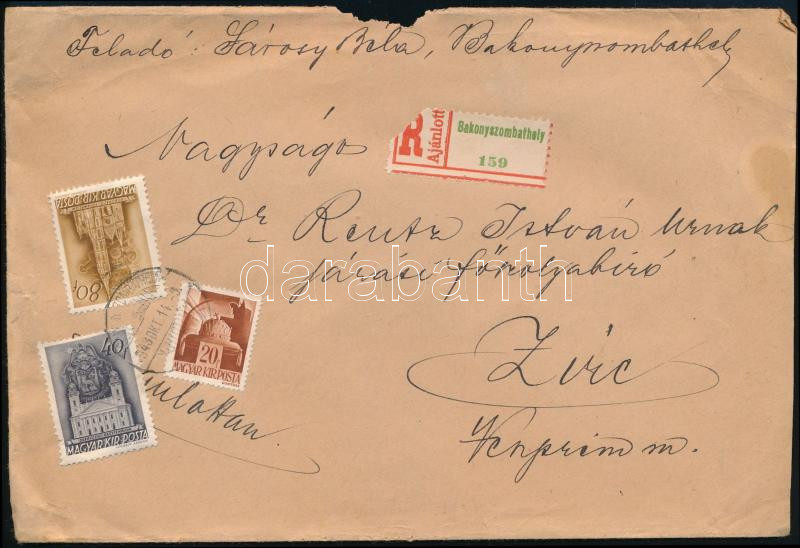 Feladó: Sárosy Béla, Bakonyszombathely
Ajánlott
Bakonyszombathely
159
Nagyságos
Dr. Rentz István Urnak
járási főszolgabíró
Zirc
Veszprém m.
MAGYAR KIR. POSTA
80f
20
MAGYAR KIR. POSTA
40f
MAGYAR KIR. POSTA
darabanth